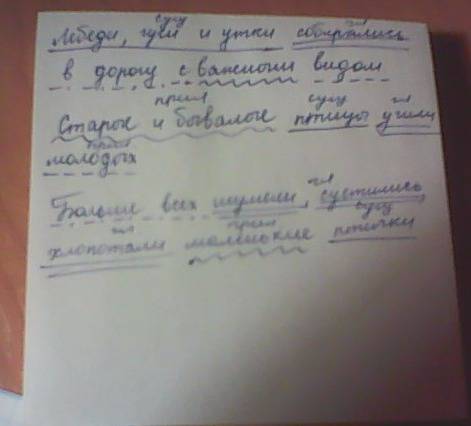 сущ гл
Лебеди, гуси и утки собирались
в дорогу с важным видом
прил сущ гл
Старые и бывалые птицы учили
прил
молодых
гл
Больше всех шумели, суетились,
гл прил сущ
хлопотали маленькие птички